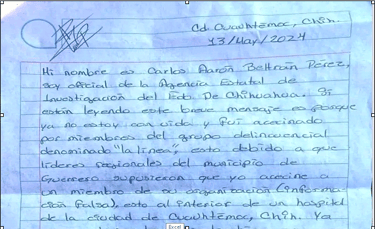 Cd. Cuauhtémoc, Chih.
13/May/2024
Mi nombre es Carlos Aarón Beltrán Pérez,
soy oficial de la Agencia Estatal de
Investigación del Edo. De Chihuahua. Si
están leyendo este breve mensaje es porque
ya no estoy con vida y fui acecinado
por miembros del grupo delincuencial
denominado "la linea", esto debido a que
lideres regionales del municipio de
Guerrero supusieron que yo acecine a
un miembro de su organización (informa-
ción falsa), esto al interior de un hospital
de la ciudad de Cuauhtémoc, Chih. Ya
Excel